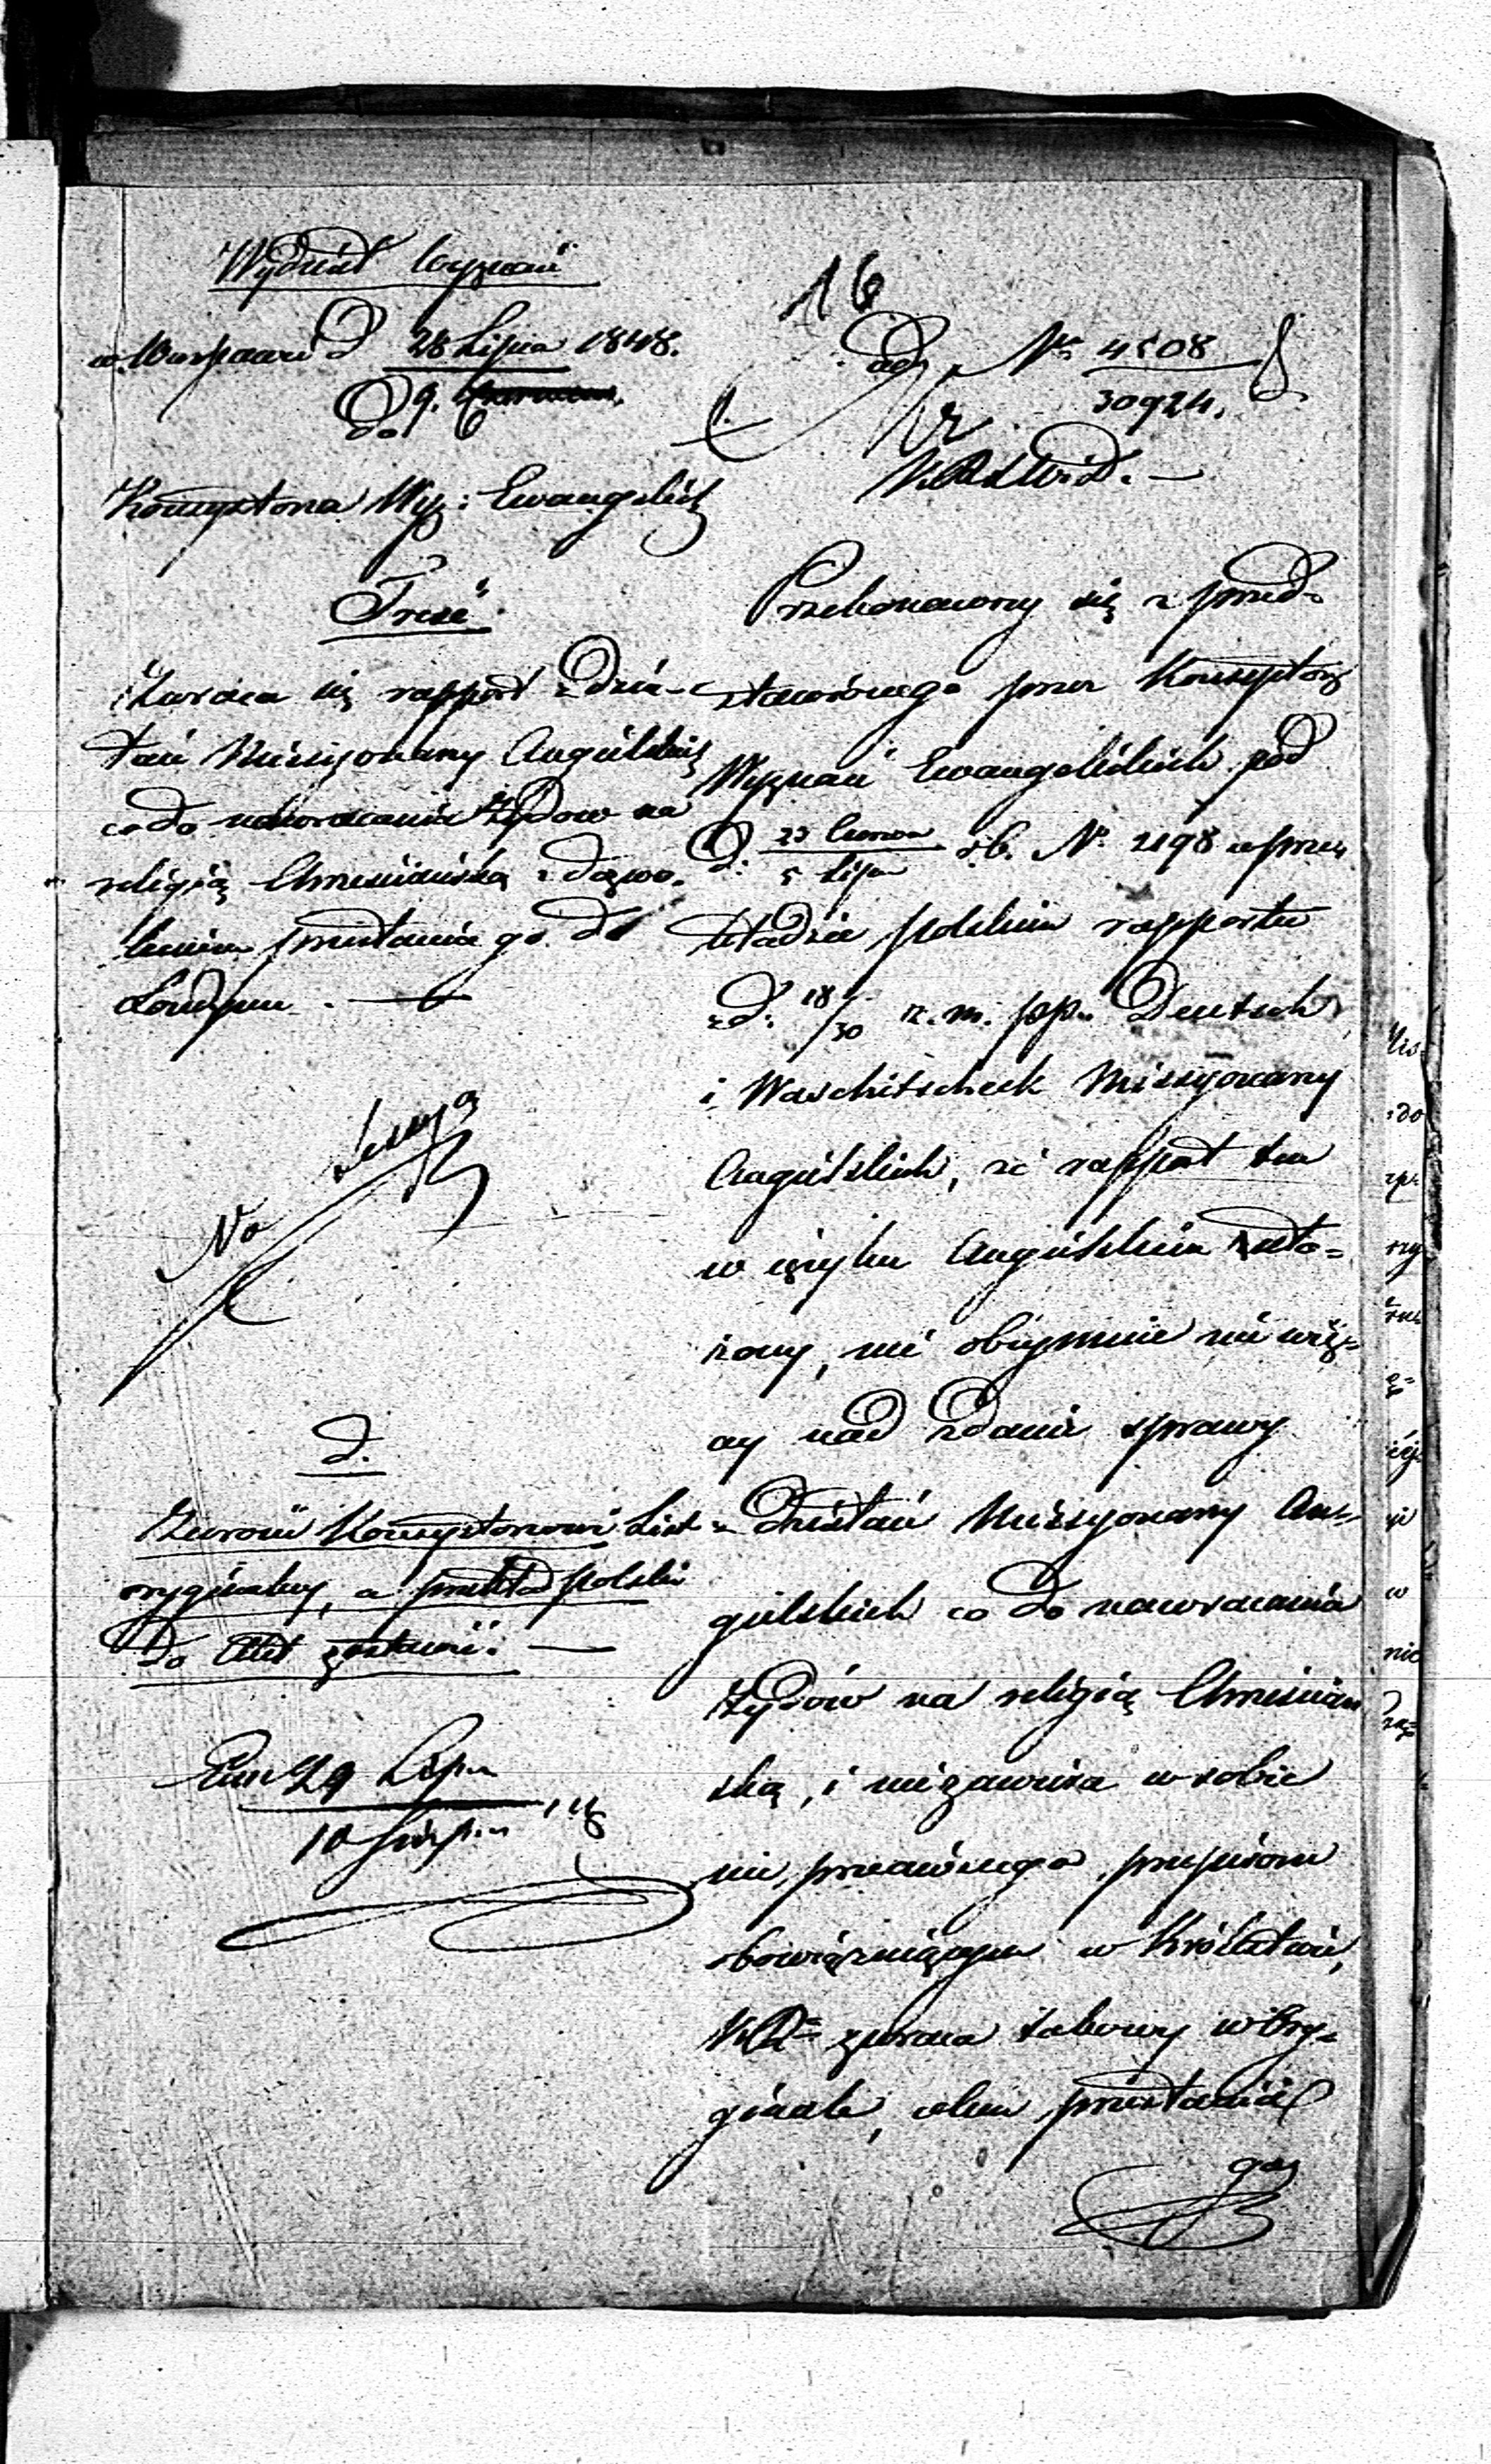 Wydział Wyznań
16
w Warszawie d 28 Lipca 1848.
9.
do
ad Nr 4508
30924.
K.R.S.W.i D. —
Konsystorza Wyz: Ewangelick
Treść.
Zwraca się rapport z dzia-
łań Missyonarzy Angielskich
co do nawracania Żydów na
religią Chrześciańską z dozwo-
leniem przesłania go do
Londynu. —
No
d.
Zwrócić Konsystorzowi List
oryginalny, a przekład polski
do Akt zostawić. —
29 Lipca
10 Sierpnia
Przekonawszy się z przed-
stawionego przez Konsystorz
Wyznań Ewangelickich pod
d. 23 Czerwca / 5 Lipca r.b. Nr 2198 w prze-
kładzie polskim rapportu
z d. 18/30 z.m. pp. Deutsch
i Waschitscheck Missyonarzy
Angielskich, że rapport ten
w języku Angielskim uło-
żony, nie obejmuje nic wię-
cej nad zdanie sprawy
z Działań Missyonarzy An-
gielskich co do nawracania
Żydów na religią Chrześciań
ską, i nie zawiera w sobie
nic przeciwnego przepisom
obowiązującym w Królestwie,
K.R. zwraca takowy w Ory-
ginale, celem przesłania
go